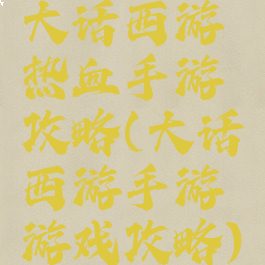 大话西游
热血手游
攻略(大话
西游手游
游戏攻略)